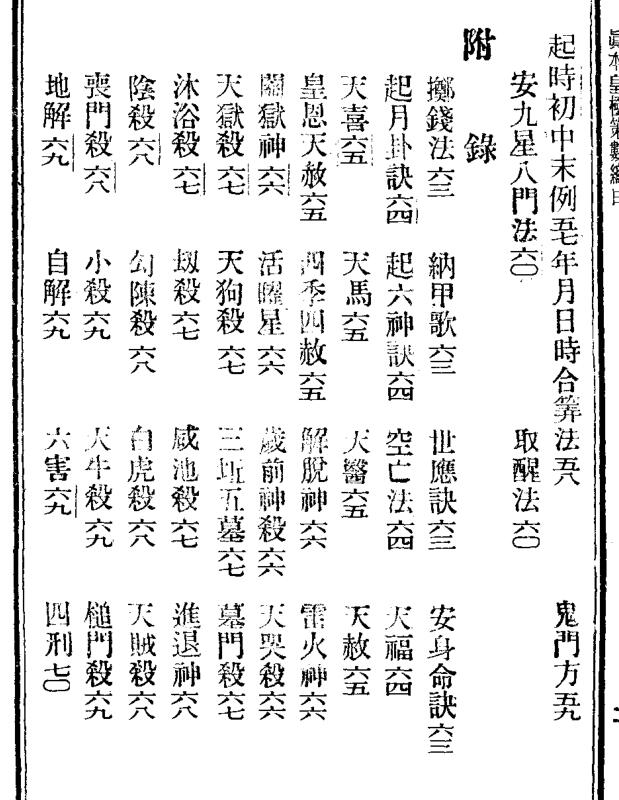 起時初中末例五七 年月日時合筭法五八 鬼門方五九
安九星八門法六〇 取醒法六〇
附錄
擲錢法六三 納甲歌六三 世應訣六三 安身命訣六三
起月卦訣六四 起六神訣六四 空亡法六四 天福六四
天喜六五 天馬六五 天醫六五 天赦六五
皇恩天赦六五 四季四赦六五 解脫神六六 雷火神六六
關獄神六六 活曜星六六 歲前神殺六六 天哭殺六六
天獄殺六七 天狗殺六七 三坵五墓六七 墓門殺六七
沐浴殺六七 刼殺六七 咸池殺六七 進退神六八
陰殺六八 勾陳殺六八 白虎殺六八 天賊殺六八
喪門殺六八 小殺六九 大牛殺六九 槌門殺六九
地解六九 自解六九 六害六九 四刑七〇